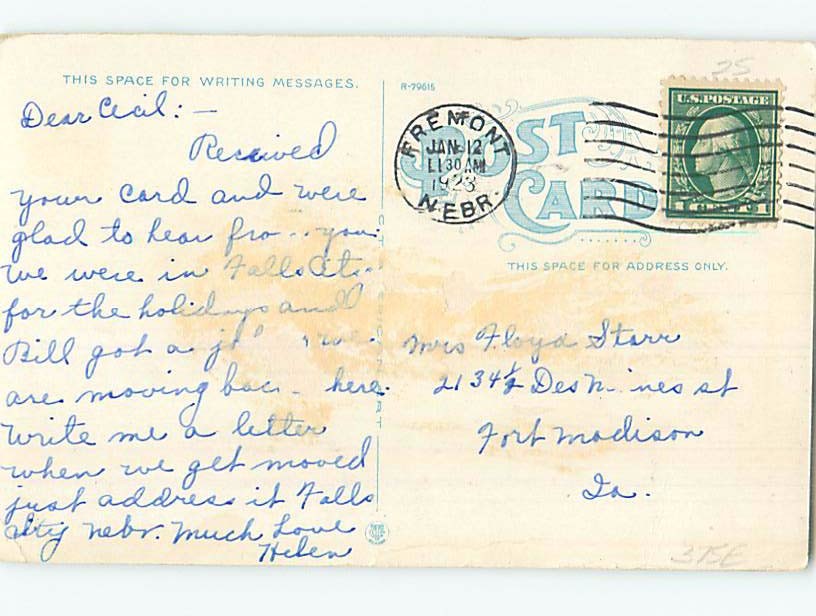 THIS SPACE FOR WRITING MESSAGES.
Dear Cecil: —
Received
your card and were
glad to hear fro you.
We were in Falls City
for the holidays and
Bill got a j
are moving bac here.
Write me a letter
when we get moved
just address it Falls
City Nebr. Much Love
Helen
R-79615
POST
CARD
FREMONT
JAN 12
11 30 AM
1923
NEBR.
U.S. POSTAGE
1 1
THIS SPACE FOR ADDRESS ONLY.
Mrs Floyd Starr
2134½ Des M ines st
Fort Madison
Ia.
25